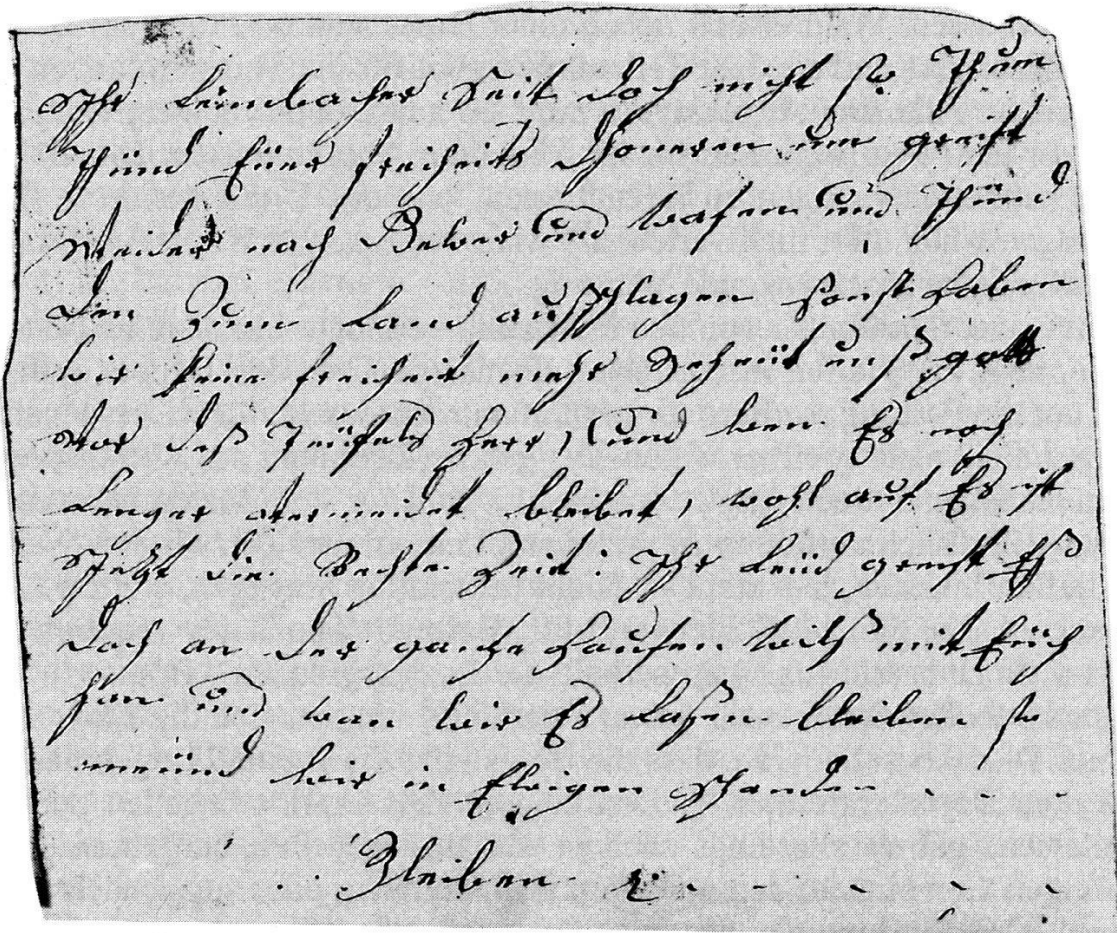 Ihr Leimbacher Seit doch nicht so Thum
Thünd Eüer freiheits Thonnen um greift
Weider nach Behr und wafen und Thünd
den Zum Land aus Schlagen sonst haben
wir keine freiheit mehr Behüt unß gott
vor deß Teüfels heer, und wen Es noch
Lenger vermeidet bleibet, wohl auf Es ist
Jetzt die Rechte Zeit. Ihr Leüd greift Eß
doch an der gantze haufen wilß mit Eüch
han und wan wir Es Laßen bleiben so
meünd wir in Ewigen Schanden - - -
Bleiben - - - - -